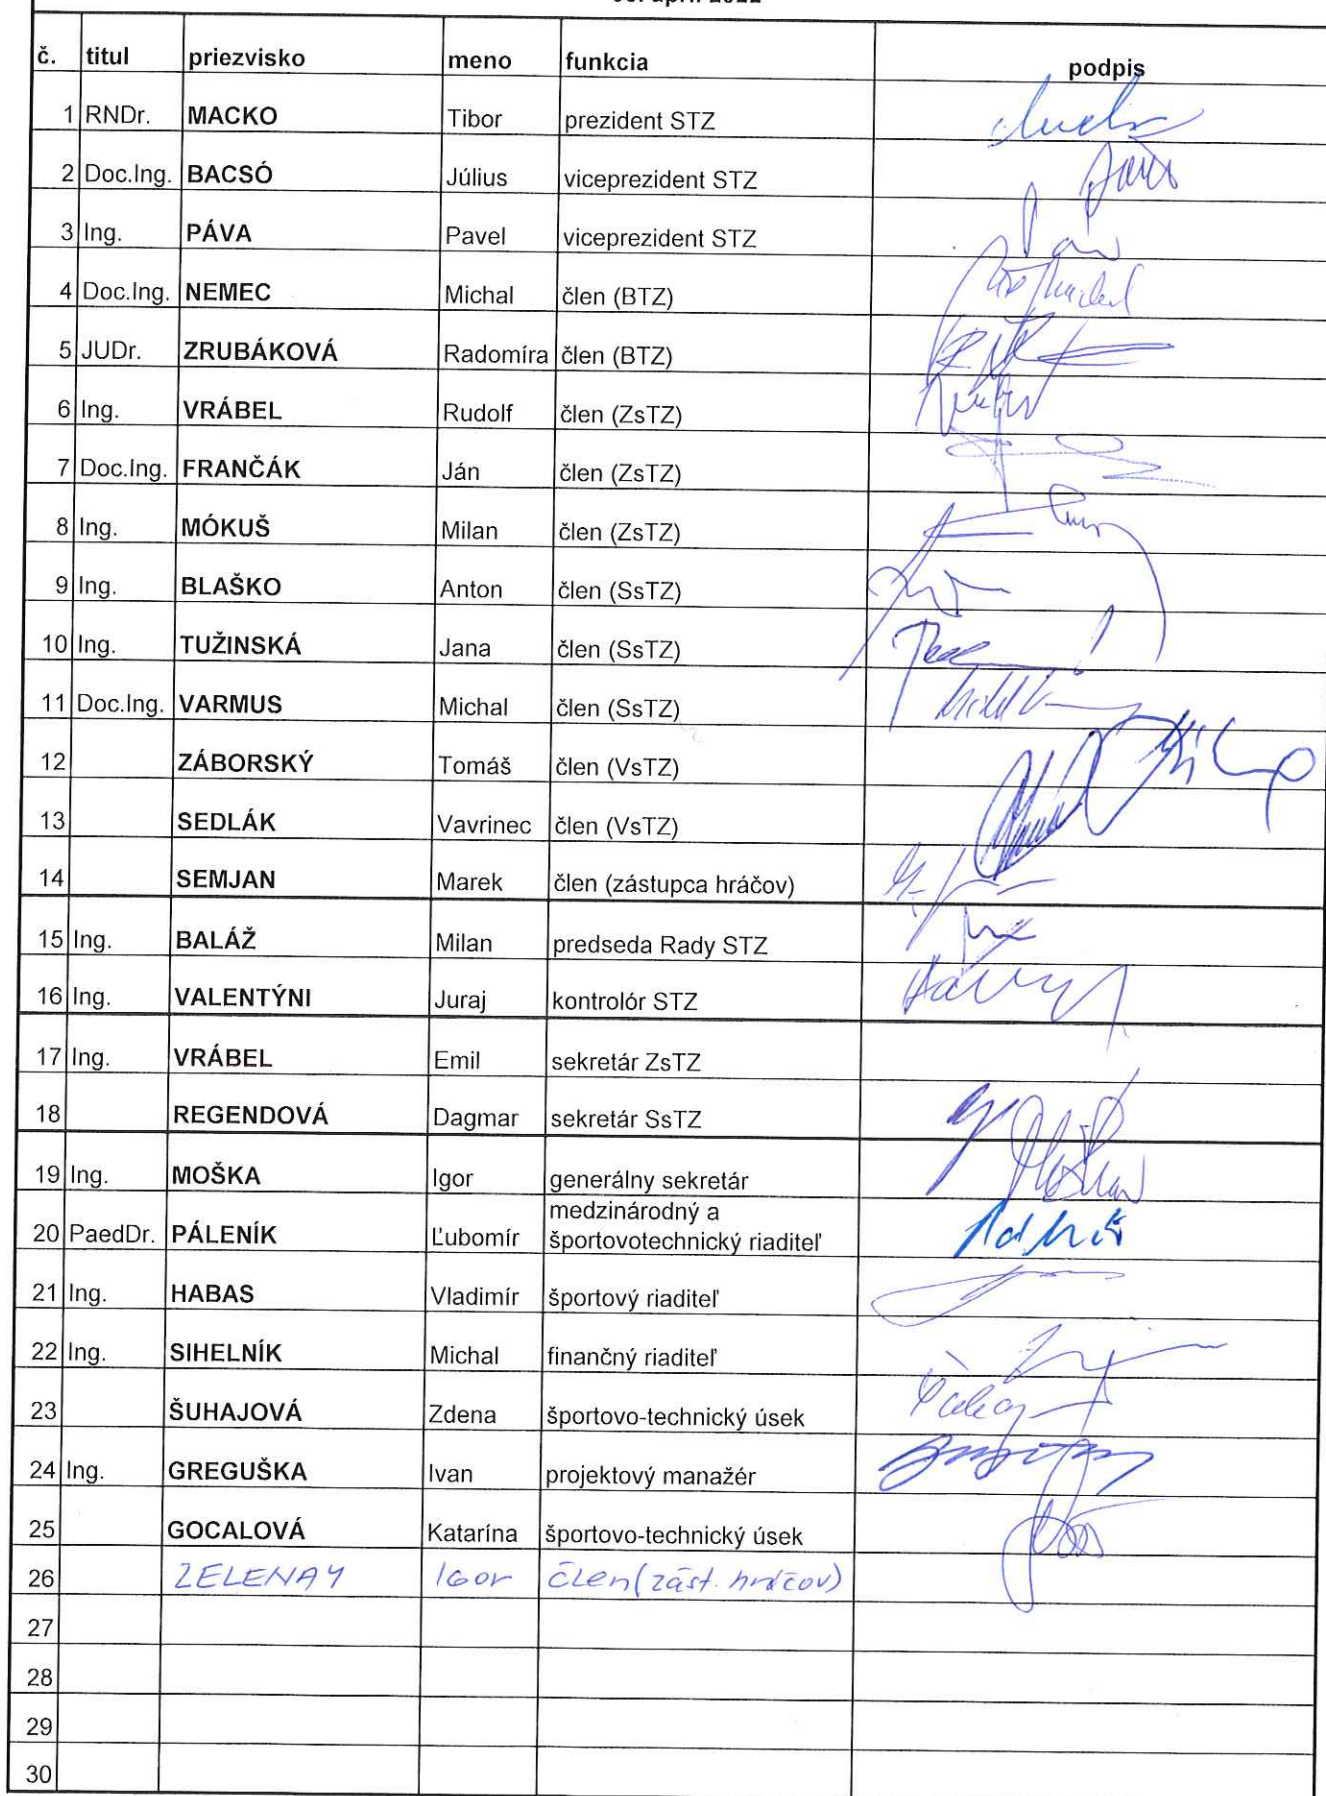 č. titul priezvisko meno funkcia podpis
1 RNDr. MACKO Tibor prezident STZ
2 Doc.Ing. BACSÓ Július viceprezident STZ
3 Ing. PÁVA Pavel viceprezident STZ
4 Doc.Ing. NEMEC Michal člen (BTZ)
5 JUDr. ZRUBÁKOVÁ Radomíra člen (BTZ)
6 Ing. VRÁBEL Rudolf člen (ZsTZ)
7 Doc.Ing. FRANČÁK Ján člen (ZsTZ)
8 Ing. MÓKUŠ Milan člen (ZsTZ)
9 Ing. BLAŠKO Anton člen (SsTZ)
10 Ing. TUŽINSKÁ Jana člen (SsTZ)
11 Doc.Ing. VARMUS Michal člen (SsTZ)
12 ZÁBORSKÝ Tomáš člen (VsTZ)
13 SEDLÁK Vavrinec člen (VsTZ)
14 SEMJAN Marek člen (zástupca hráčov)
15 Ing. BALÁŽ Milan predseda Rady STZ
16 Ing. VALENTÝNI Juraj kontrolór STZ
17 Ing. VRÁBEL Emil sekretár ZsTZ
18 REGENDOVÁ Dagmar sekretár SsTZ
19 Ing. MOŠKA Igor generálny sekretár
20 PaedDr. PÁLENÍK Ľubomír medzinárodný a
športovotechnický riaditeľ
21 Ing. HABAS Vladimír športový riaditeľ
22 Ing. SIHELNÍK Michal finančný riaditeľ
23 ŠUHAJOVÁ Zdena športovo-technický úsek
24 Ing. GREGUŠKA Ivan projektový manažér
25 GOCALOVÁ Katarína športovo-technický úsek
26 ZELENAY Igor člen (zást. hráčov)
27
28
29
30